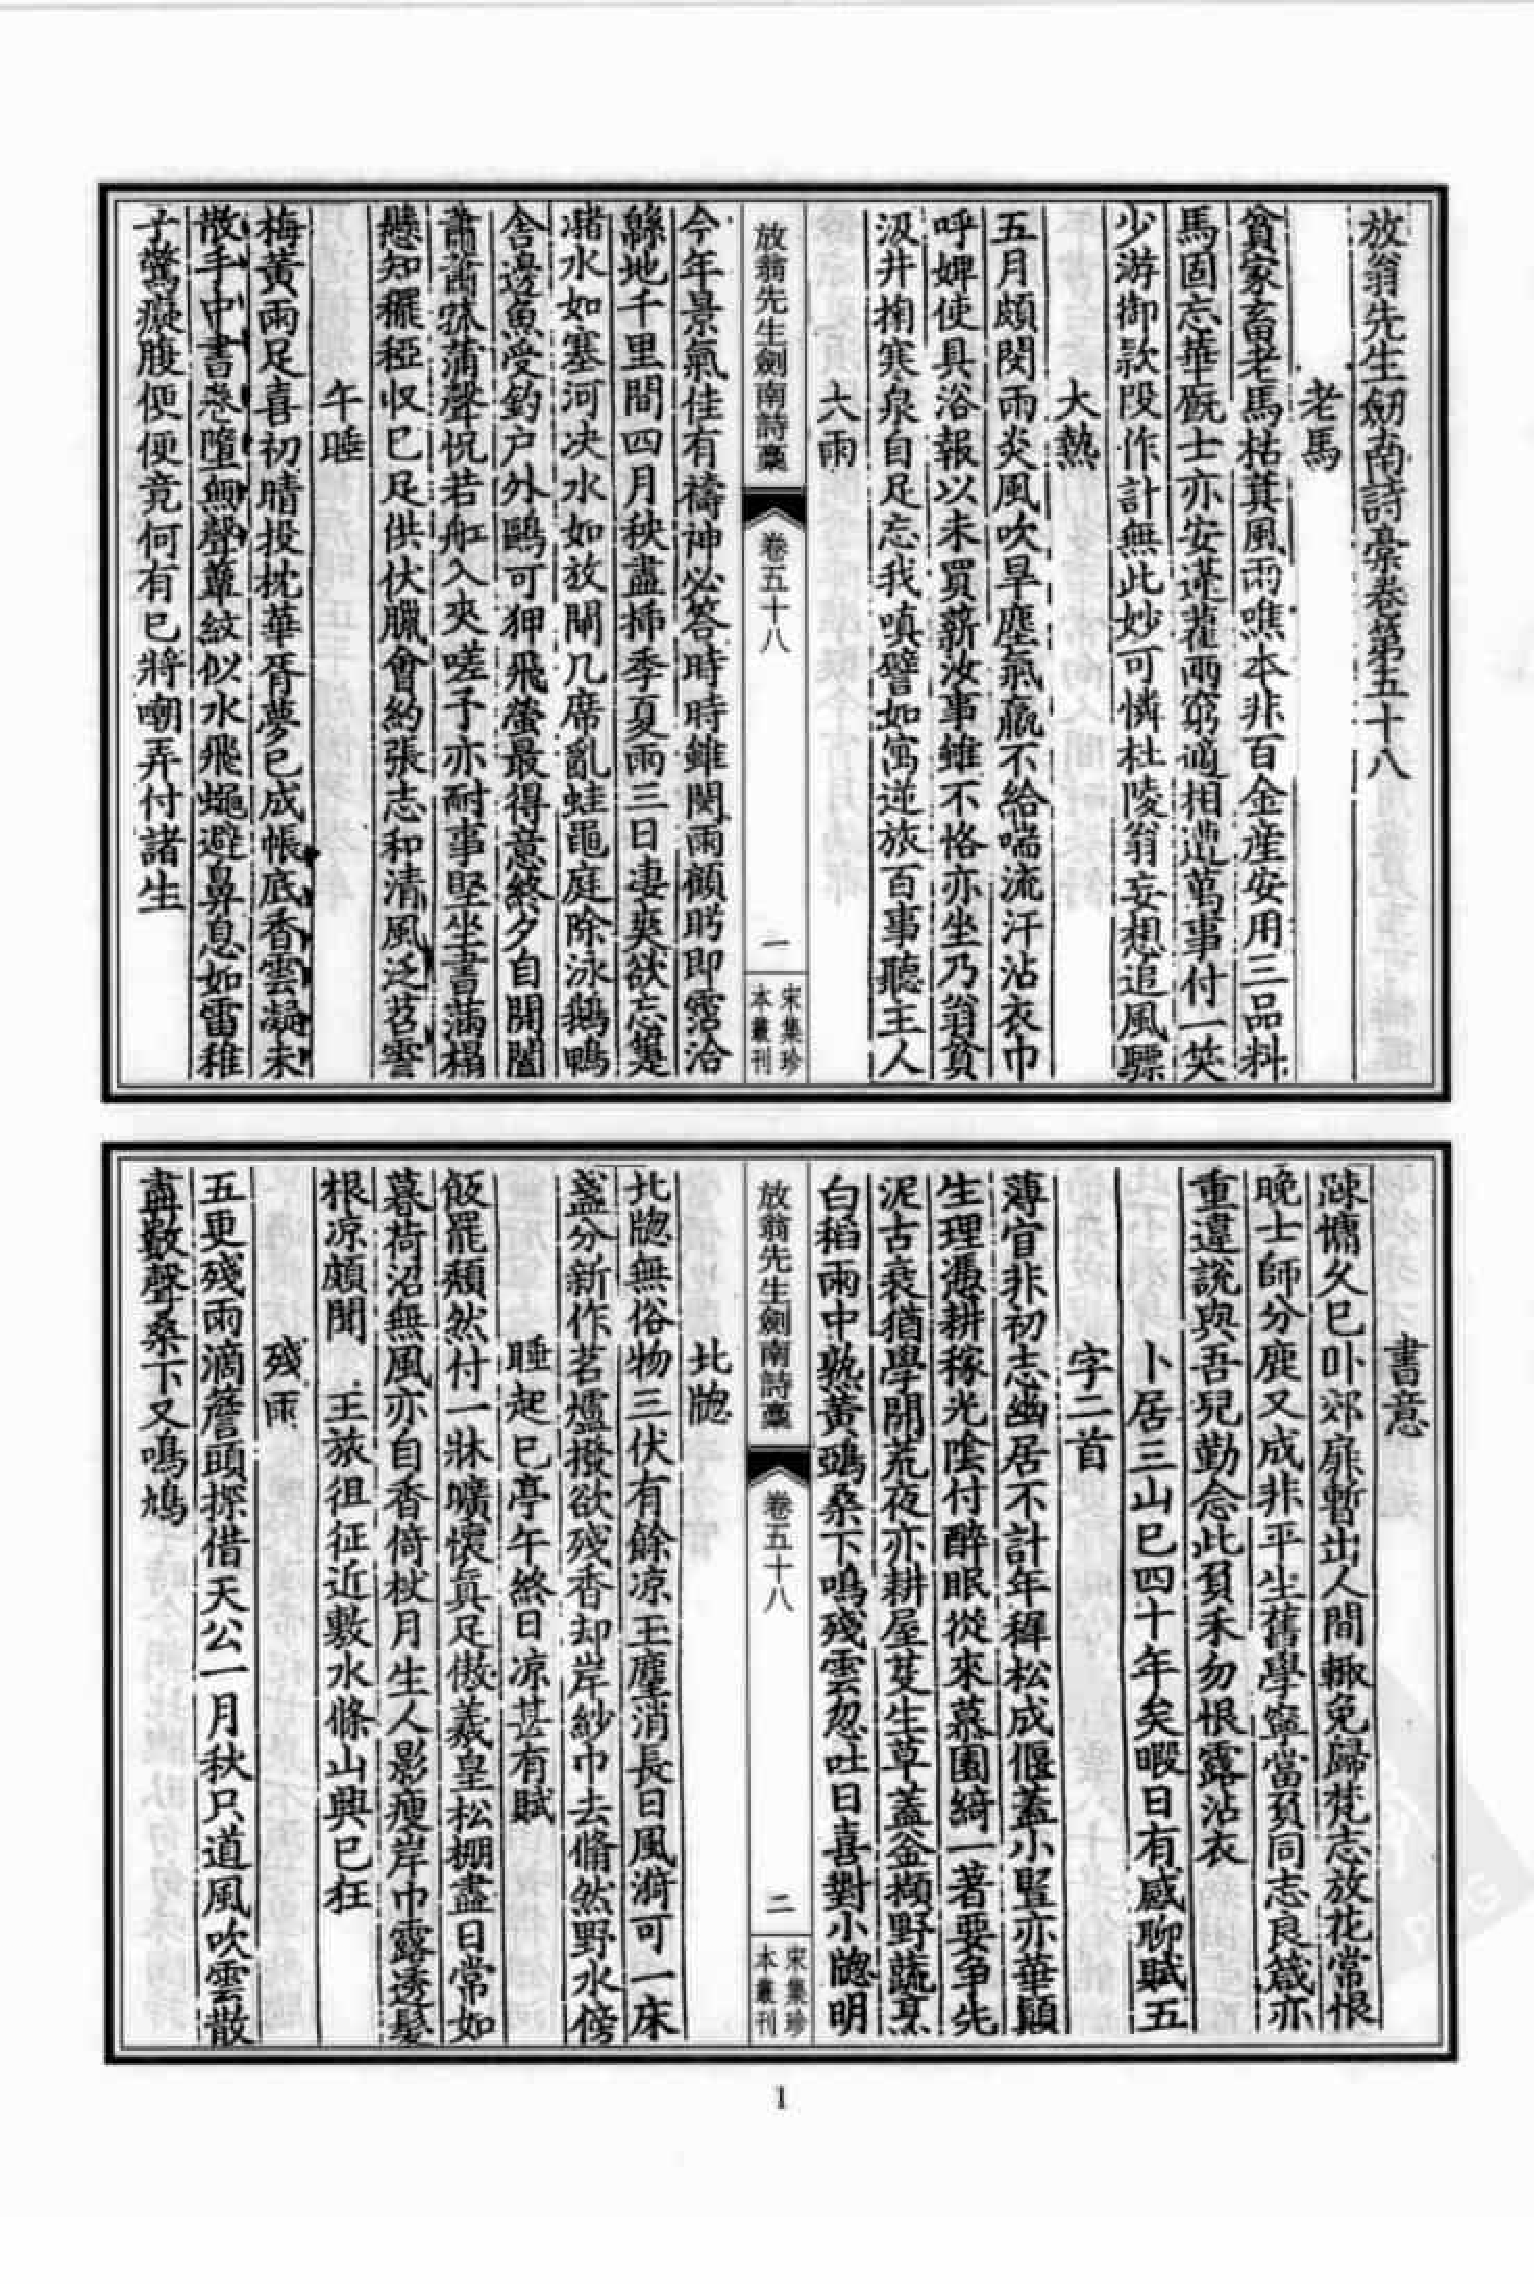 放翁先生劒南詩藁卷第五十八
老馬
貧家畜老馬枯萁風雨噍本非百金産安用三品料
馬固忘華廐士亦安蓬藋兩窮適相遭萬事付一笑
少游御款段作計無此妙可憐杜陵翁妄想追風驃
大熱
五月頗閔雨炎風吹旱塵氣羸不給喘流汗沾衣巾
呼婢使具浴報以未買薪汝事雖不恪亦坐乃翁貧
汲井掬寒泉自足忘我嗔譬如寓逆旅百事聽主人
大雨
放翁先生劍南詩藁
卷五十八
一
宋集珍
本叢刊
今年景氣佳有禱神必答時時雖閔雨顧眄即霑洽
緜地千里間四月秧盡揷季夏雨三日凄爽欲忘箑
瀦水如塞河决水如放閘几席亂蛙黽庭除泳鵝鴨
舍邊魚受釣户外鷗可狎飛螢最得意終夕自開闔
蕭蕭菰蒲聲怳若舡入夾嗟予亦耐事堅坐書滿榻
懸知穲稏収已足供伏臘會約張志和清風泛苕霅
午睡
梅黃雨足喜初晴投枕華胥夢已成帳底香雲凝未
散手中書卷墮無聲蘄紋似水飛蠅避鼻息如雷稚
子驚癡腹便便竟何有已將嘲弄付諸生
書意
踈慵久已卧郊扉暫出人間輙免歸梵志放花常恨
晚士師分鹿又成非平生舊學寧當負同志良箴亦
重違說與吾兒勤念此負禾勿恨露沾衣
卜居三山已四十年矣暇日有感聊賦五
字二首
薄宦非初志幽居不計年稺松成偃蓋小豎亦華顚
生理憑耕稼光陰付醉眠從來慕園綺一著要争先
泥古衰猶學開荒夜亦耕屋茨生草蓋釡擷野蔬烹
白稻雨中熟黃鵶桑下鳴殘雲忽吐日喜對小牎明
放翁先生劍南詩藁
卷五十八
二
宋集珍
本叢刊
北牎
北牎無俗物三伏有餘凉玉麈消長日風漪可一床
盞分新作茗爐撥欲殘香却岸紗巾去翛然野水傍
睡起已亭午終日凉甚有賦
飯罷頹然付一牀曠懷眞足傲羲皇松棚盡日常如
暮荷沼無風亦自香倚杖月生人影瘦岸巾露透髮
根凉頗聞王旅徂征近敷水條山興已狂
殘雨
五更殘雨滴簷頭探借天公一月秋只道風吹雲散
盡數聲桑下又鳴鳩
1